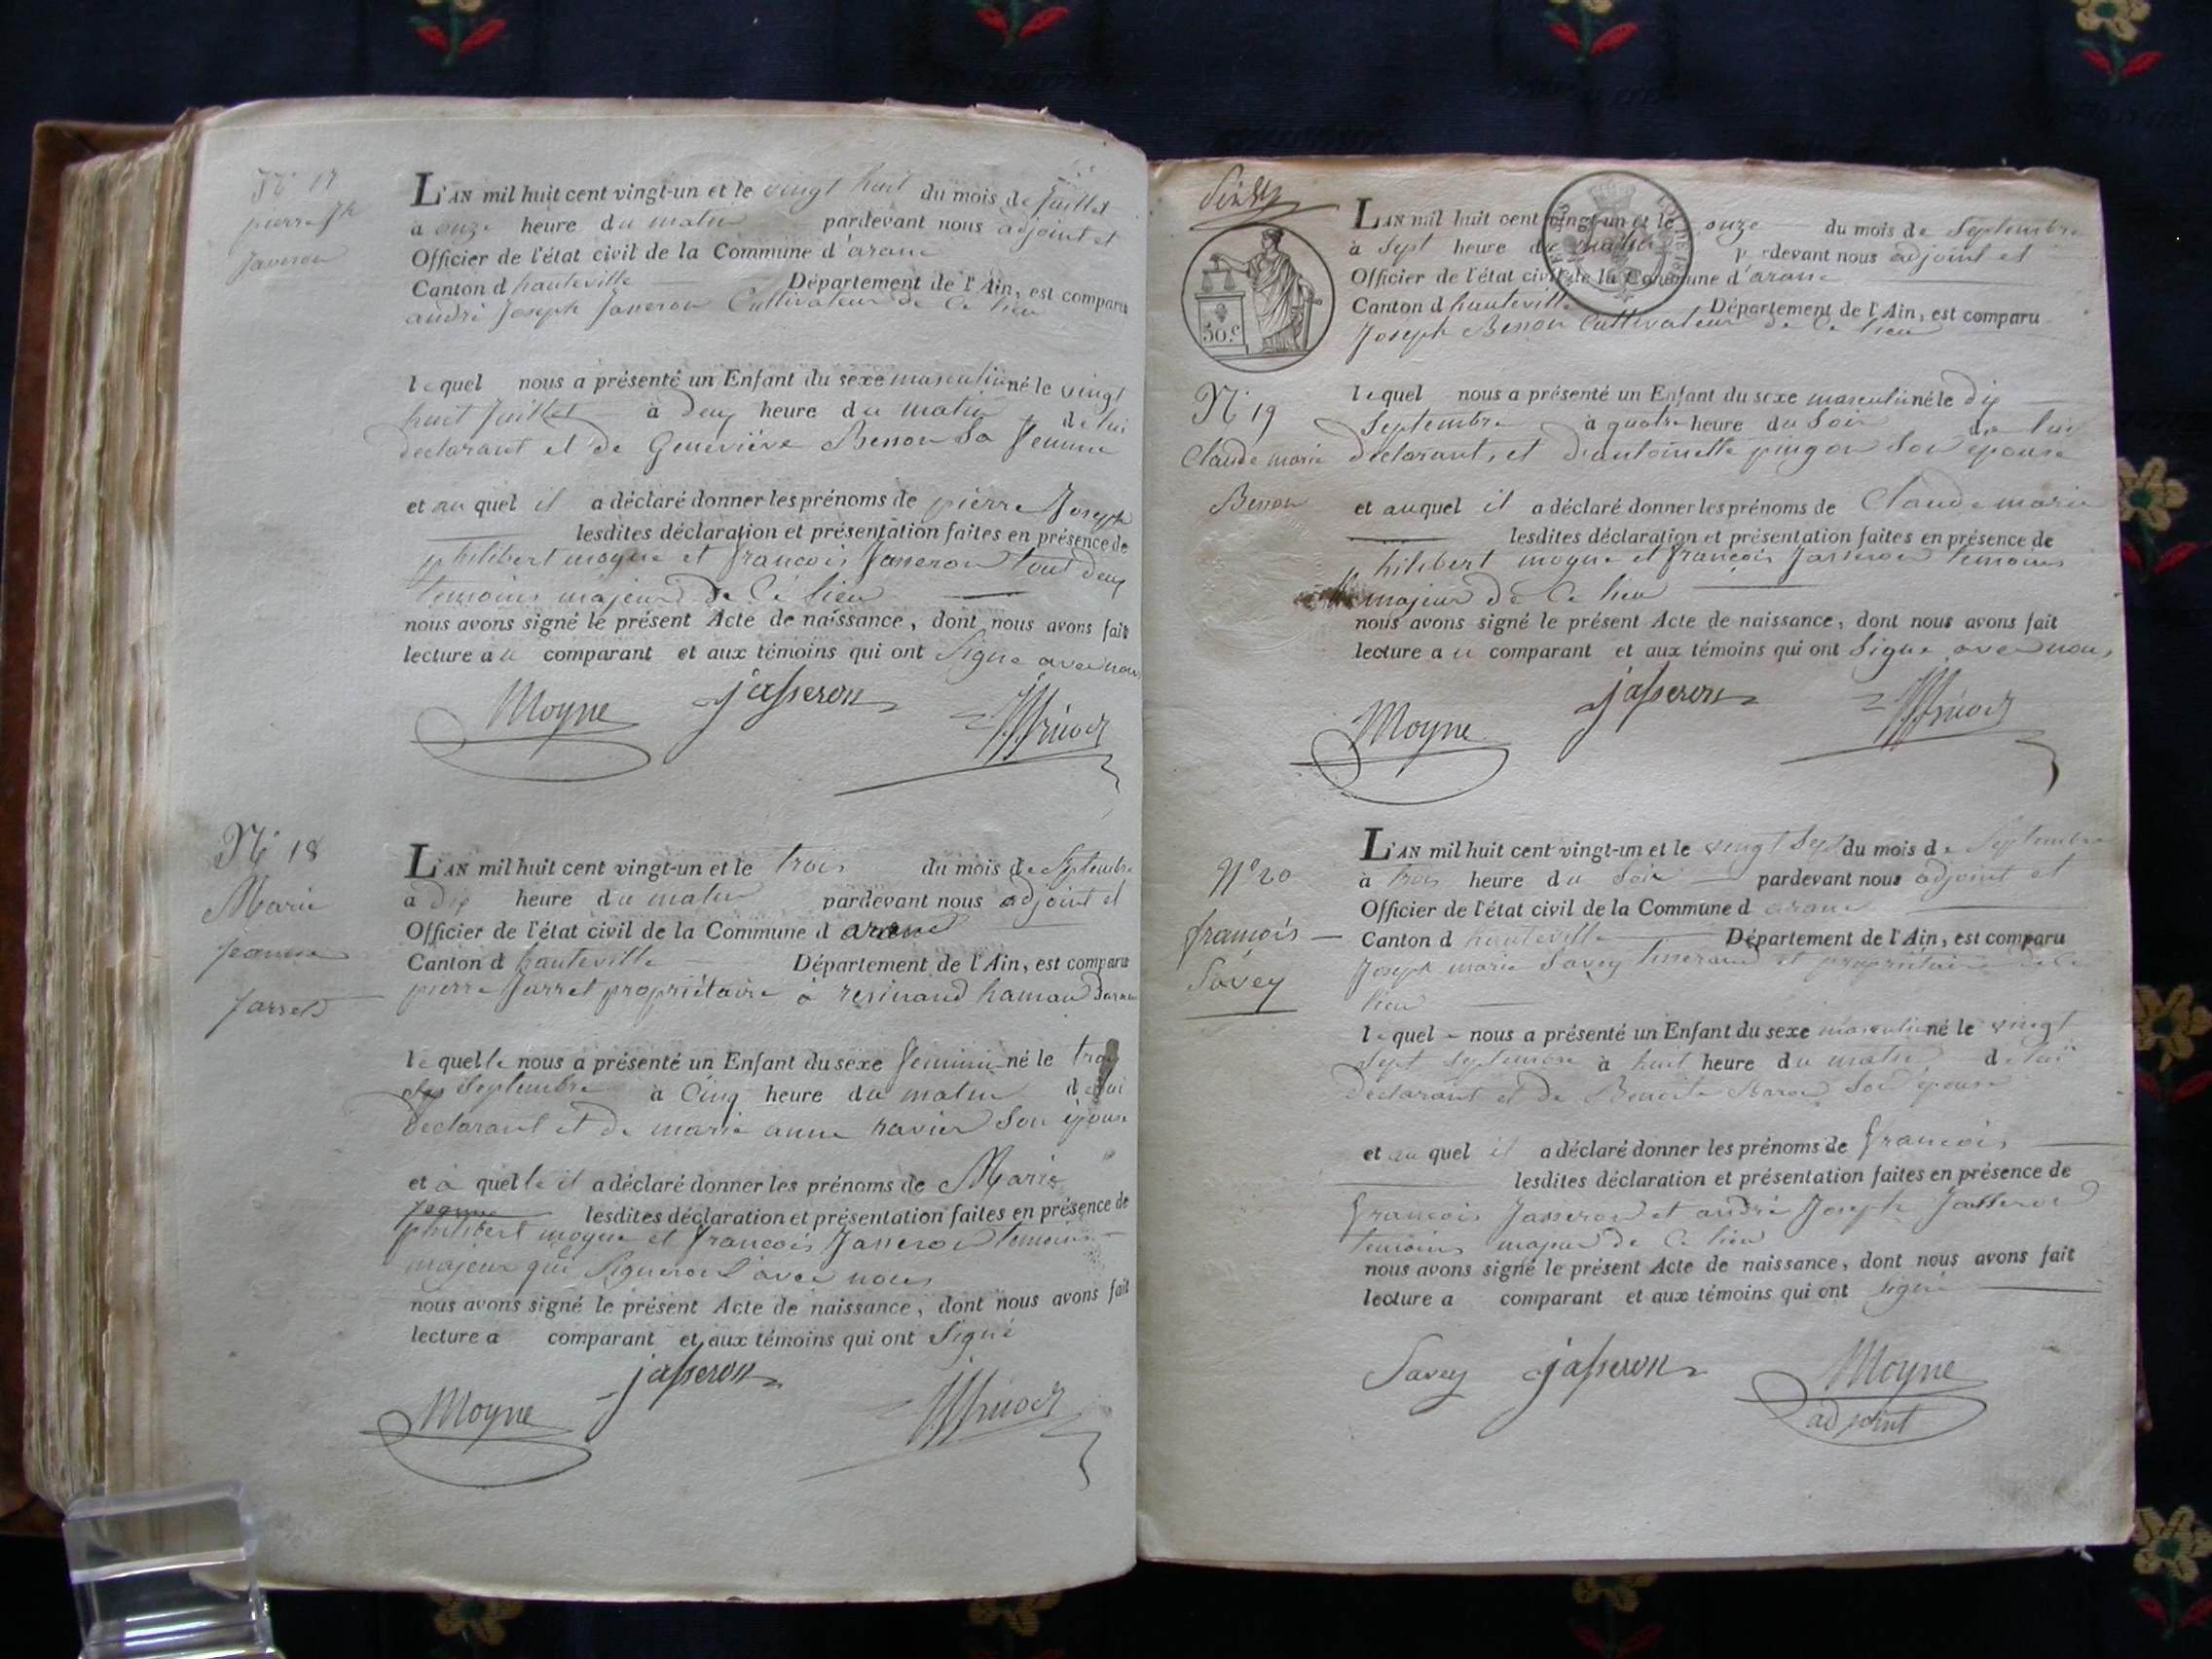 N° 17
pierre Jh
Jasseron
L'AN mil huit cent vingt-un et le vingt huit du mois de Juillet
à onze heure du matin pardevant nous adjoint et
Officier de l'état civil de la Commune d'aranc
Canton d hauteville Département de l'Ain, est comparu
andré Joseph Jasseron Cultivateur de Ce lieu
le quel nous a présenté un Enfant du sexe masculin né le vingt
huit Juillet à deux heure du matin de lui
declarant et de Geneviève Besson Sa femme
et au quel il a déclaré donner les prénoms de pierre Joseph
lesdites déclaration et présentation faites en présence de
philibert moyne et francois Jasseron tout deux
temoins majeur de Ce lieu
nous avons signé le présent Acte de naissance, dont nous avons fait
lecture au comparant et aux témoins qui ont Signé avec nous
Moyne jasseron
N° 18
Marie
Jeanne
Jarret
L'AN mil huit cent vingt-un et le trois du mois de Septembre
à dix heure du matin pardevant nous adjoint et
Officier de l'état civil de la Commune d aranc
Canton d hauteville Département de l'Ain, est comparu
pierre Jarret propriétaire à resinand hamau
le quelle nous a présenté un Enfant du sexe feminin né le trois
Septembre à Cinq heure du matin de lui
declarant et de marie anne ravier Son épouse
et à quelle il a déclaré donner les prénoms de Marie
Jeanne lesdites déclaration et présentation faites en présence de
philibert moyne et francois Jasseron temoins
majeur qui Signeront avec nous
nous avons signé le présent Acte de naissance, dont nous avons fait
lecture a comparant et aux témoins qui ont Signé
Moyne jasseron
50.c
L'AN mil huit cent vingt-un et le onze du mois de Septembre
à Sept heure du matin pardevant nous adjoint et
Officier de l'état civil de la Commune d'aranc
Canton d hauteville Département de l'Ain, est comparu
Joseph Besson Cultivateur de Ce lieu
N° 19
Claude marie
Besson
le quel nous a présenté un Enfant du sexe masculin né le dix
Septembre à quatre heure du Soir de lui
declarant, et d'antoinette pingon Son épouse
et auquel il a déclaré donner les prénoms de Claude marie
lesdites déclaration et présentation faites en présence de
philibert moyne et francois Jasseron temoins
majeur de Ce lieu
nous avons signé le présent Acte de naissance, dont nous avons fait
lecture au comparant et aux témoins qui ont Signé avec nous
Moyne jasseron
N° 20
francois
Savey
L'AN mil huit cent vingt-un et le vingt Sept du mois de Septembre
à trois heure du Soir pardevant nous adjoint et
Officier de l'état civil de la Commune d aranc
Canton d hauteville Département de l'Ain, est comparu
Joseph marie Savey tisserand et propriétaire de Ce
lieu
le quel nous a présenté un Enfant du sexe masculin né le vingt
Sept Septembre à huit heure du matin de lui
declarant et de Benoite Son épouse
et au quel il a déclaré donner les prénoms de francois
lesdites déclaration et présentation faites en présence de
francois Jasseron et andré Joseph Jasseron
temoins majeur de Ce lieu
nous avons signé le présent Acte de naissance, dont nous avons fait
lecture a comparant et aux témoins qui ont Signé
Savey jasseron Moyne
adjoint